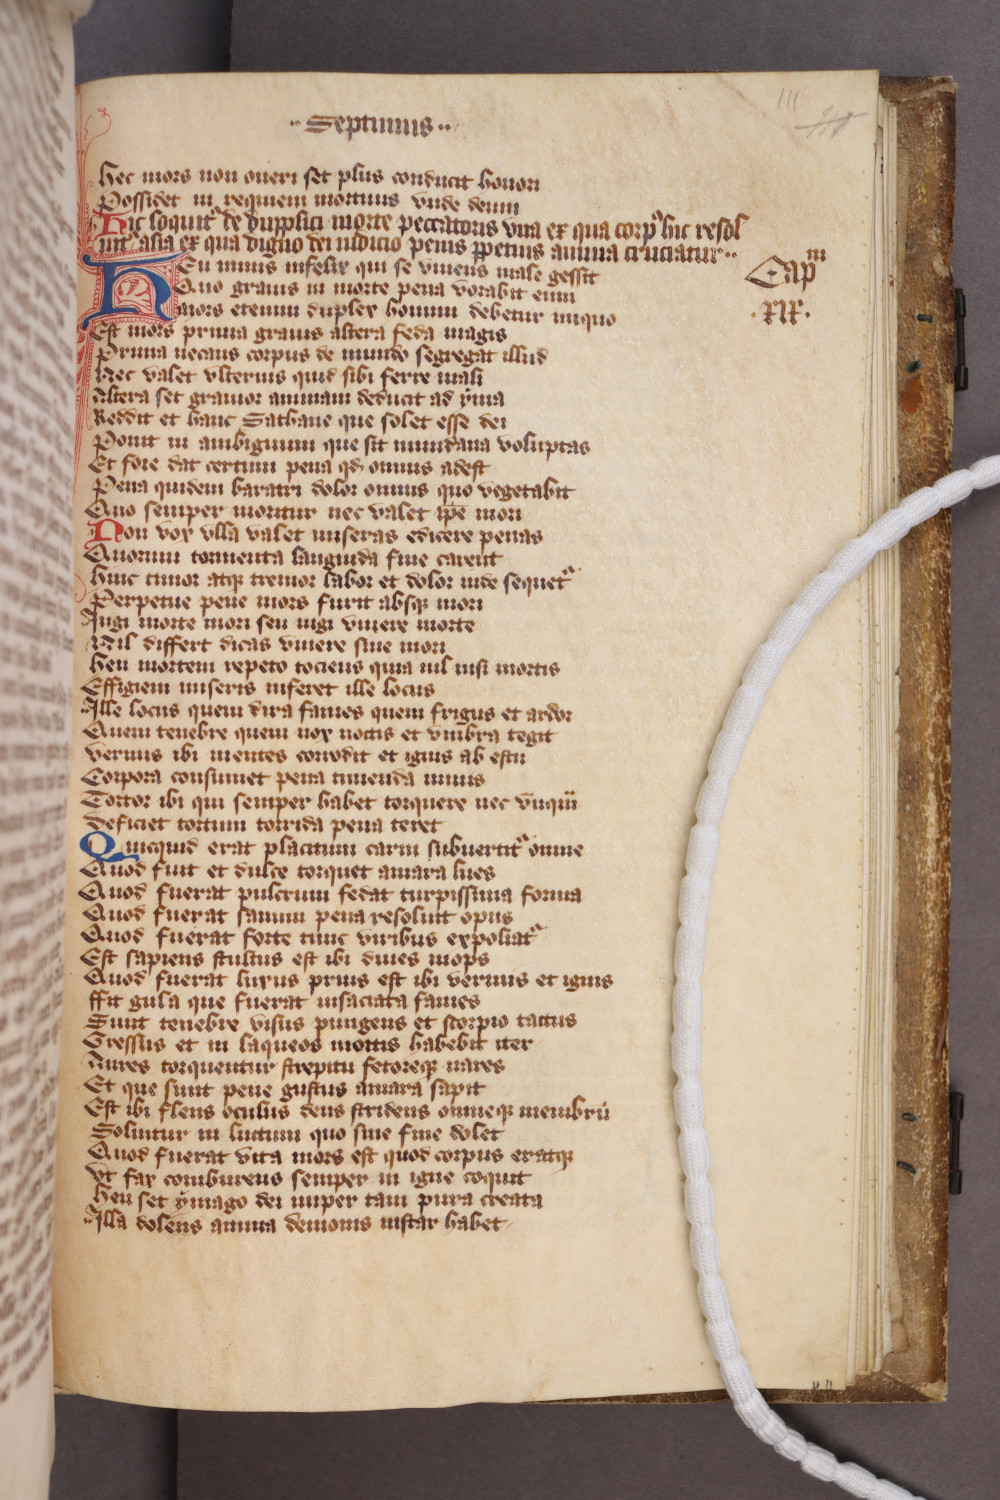 ·· Septimus ··
111
hec mors non oneri set plus conducit honori
Possidet in requiem mortuus unde deum
Hic loquit' de dupplici morte peccatoris vna ex qua corp' hic resol
uit' alia ex qua digno dei iudicio penis ppetuis anima cruciatur ··
Cap^m
·xix·
HEu nimis infelix qui se viuens male gessit
Quo grauis in morte pena vorabit eum
Mors etenim duplex homini debetur iniquo
Est mors prima grauis altera feda magis
Prima necans corpus de mundo segregat illud
Nec valet vlterius quid sibi ferre mali
Altera set grauior animam deducit ad yma
Reddit et hanc Sathane que solet esse dei
Ponit in ambiguum que sit mundana voluptas
Et fore dat certum pena qd omnis adest
Pena quidem baratri dolor omnis quo vegetabit
Quo semper moritur nec valet ipe mori
Non vox vlla valet miseras edicere penas
Quorum tormenta languida fine carent
Hinc timor atq tremor labor et dolor inde sequet'
Perpetue pene mors furit absq mori
Iugi morte mori seu iugi viuere morte
Nil differt dicas viuere siue mori
Heu mortem repeto tociens quia nil nisi mortis
Effigiem miseris inferet ille locus
Ille locus quem dira fames quem frigus et ardor
Quem tenebre quem nox noctis et vmbra tegit
Vermis ibi mentes corrodit et ignis ab estu
Corpora consumet pena timenda nimis
Tortor ibi qui semper habet torquere nec vnqū
deficiet tortum torrida pena teret
Quicquid erat placitum carni subuertit' omne
Quod fuit et dulce torquet amara lues
Quod fuerat pulcrum fedat turpissima forma
Quod fuerat sanum pena resoluit opus
Quod fuerat forte tunc viribus expoliat'
Est sapiens stultus est ibi diues inops
Quod fuerat luxus prius est ibi vermis et ignis
ffit gula que fuerat insaciata fames
Sunt tenebre visus pungens et scorpio tactus
Gressus et in laqueos mortis habebit iter
Aures torquentur strepitu fetoreq nares
Et que sunt pene gustus amara sapit
Est ibi flens oculus dens stridens omneq membrū
Soluitur in luctum quo sine fine dolet
Quod fuerat vita mors est quod corpus eratq
Vt fax comburens semper in igne coquit
Heu set ymago dei nuper tam pura creata
Illa dolens anima demonis instar habet